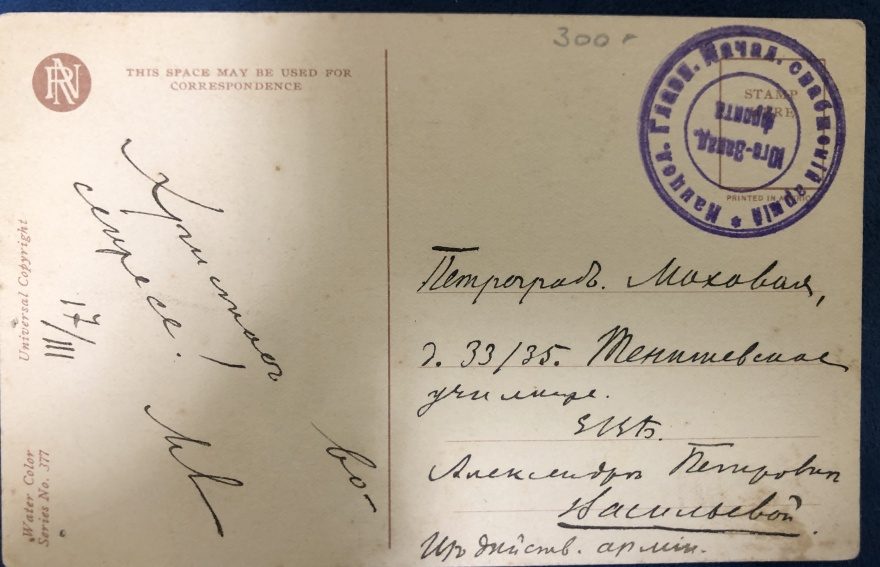 THIS SPACE MAY BE USED FOR
CORRESPONDENCE
Христосъ во-
скресе!
17/III
Universal Copyright
Water Color
Series No. 377
300 г
Канцел. Главн. Начал. снабженій армій *
Юго-Запад.
фронта
STAMP
HERE
PRINTED IN
Петроградъ. Моховая,
д. 33/35. Тенишевское
училище.
ЕВБ.
Александрѣ Петровнѣ
Васильевой
Изъ дѣйств. арміи.